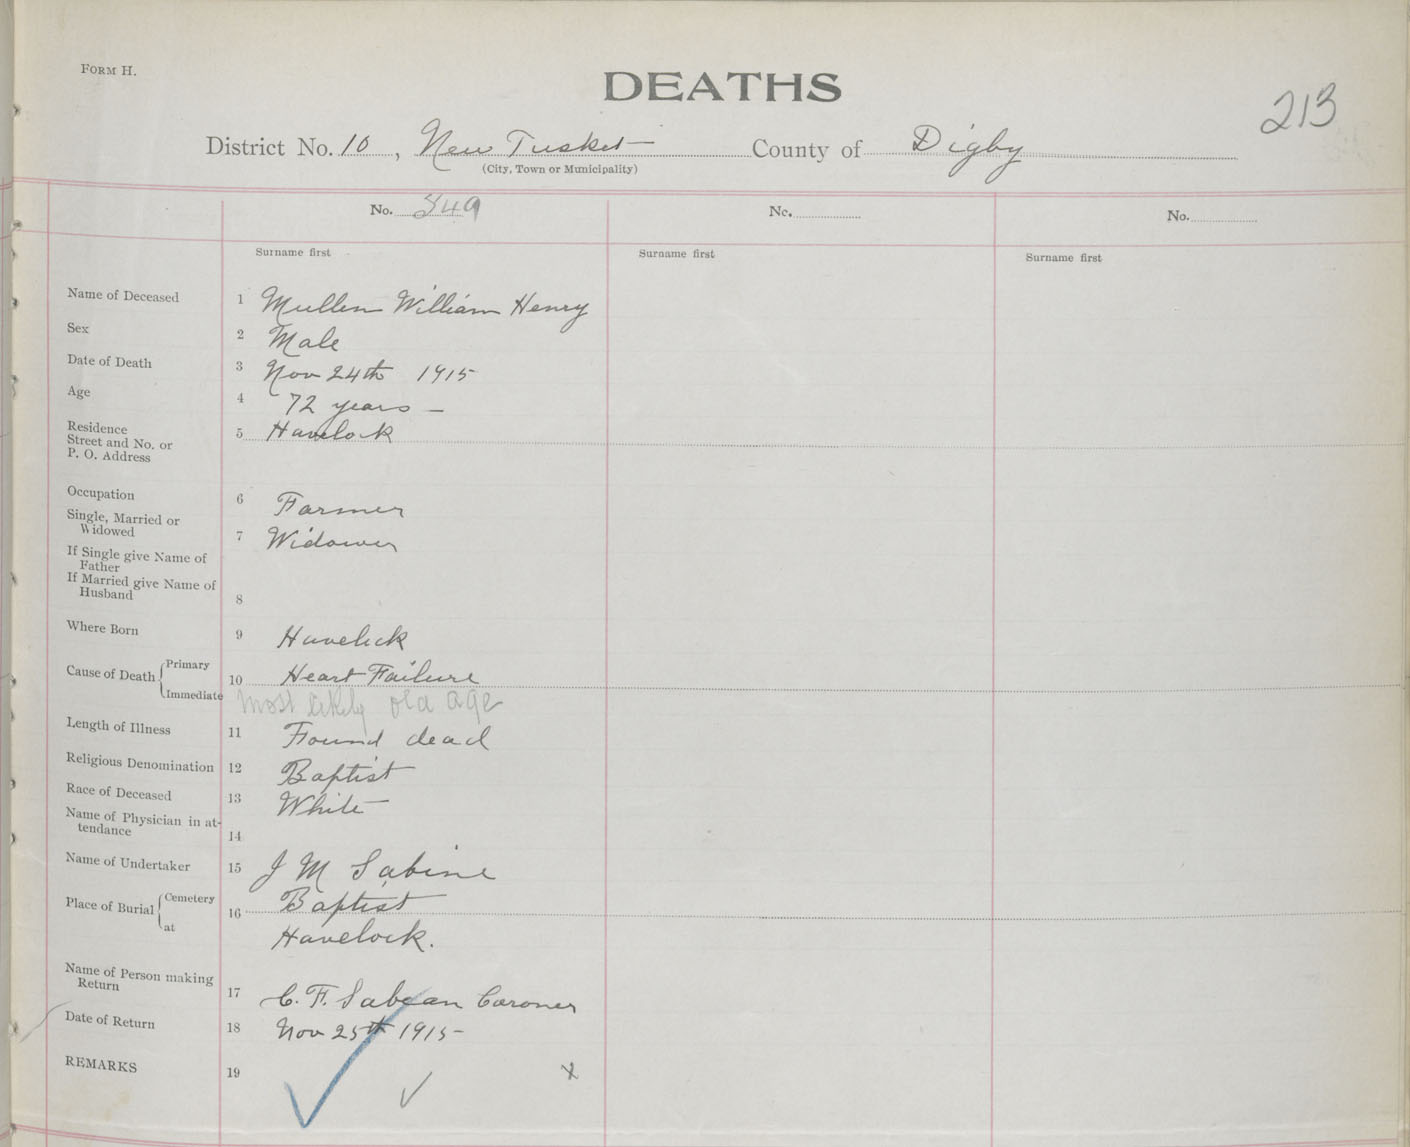 FORM H.
DEATHS
213
District No. 10, New Tusket County of Digby
(City, Town or Municipality)
No. 349 No. No.
Surname first Surname first Surname first
Name of Deceased 1 Mullen William Henry
Sex 2 Male
Date of Death 3 Nov 24th 1915
Age 4 72 years –
Residence
Street and No. or 5 Havelock
P. O. Address
Occupation 6 Farmer
Single, Married or
Widowed 7 Widower
If Single give Name of
Father
If Married give Name of
Husband 8
Where Born 9 Havelock
Cause of Death Primary 10 Heart Failure
Immediate most likely old age
Length of Illness 11 Found dead
Religious Denomination 12 Baptist
Race of Deceased 13 White
Name of Physician in at-
tendance 14
Name of Undertaker 15 J M Sabine
Place of Burial Cemetery 16 Baptist
at Havelock.
Name of Person making
Return 17 C. F. Sabean Coroner
Date of Return 18 Nov 25th 1915
REMARKS 19 x